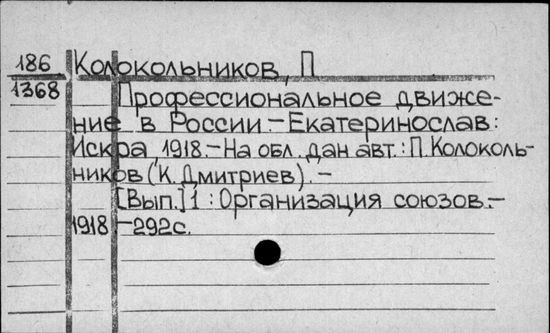 186 Колокольников, П
1368 Профессиональное движе-
ние в России.-Екатеринослав:
Искра, 1918.-На обл. дан авт.: П. Колоколь-
ников (К. Дмитриев). -
[Вып.] 1 : Организация союзов.-
1918 -292с.